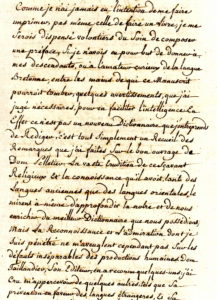 Comme je n'ai jamais eu l'intention de me faire
imprimer, pas même celle de faire un Livre, je me
serois dispensé volontiers du Soin de composer
une préface, si je n'avois eu pour but de donner à mes
descendants, ou à l'amateur curieux de la langue
Bretonne, entre les mains de qui ce Manuscrit
pourroit tomber, quelques avertissements, que j'ai
jugé nécessaires, pour en faciliter l'intelligence. En
Effet ce n'est pas un nouveau Dictionnaire que j'entreprends
de Rediger, c'est tout Simplement un Recueil des
Remarques que j'ai faites sur le bon ouvrage de
Dom Le Pelletier. La vaste érudition de ce sçavant
Religieux et la connoissance qu'il avoit, tant des
langues anciennes que des langues orientales, le
mirent à même d'approfondir la notre, et de nous
enrichir du meilleur Dictionnaire que nous possédions.
Mais la Reconnoissance et l'admiration dont je
Suis pénétré ne m'aveuglent cependant pas Sur les
défauts inséparables des productions humaines. Dom
Taillandier, Son Editeur, en a reconnu quelques-uns; j'ai
Cru m'appercevoir de quelques autres, tels que la
prévention en faveur des langues étrangères, et